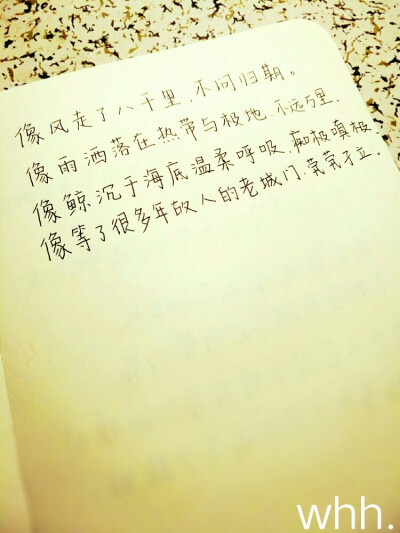 像风走了八千里.不问归期。
像雨洒落在热带与极地.不远万里.
像鲸沉于海底温柔呼吸.痴极嗔极.
像等了很多年故人的老城门.茕茕孑立.
whh.